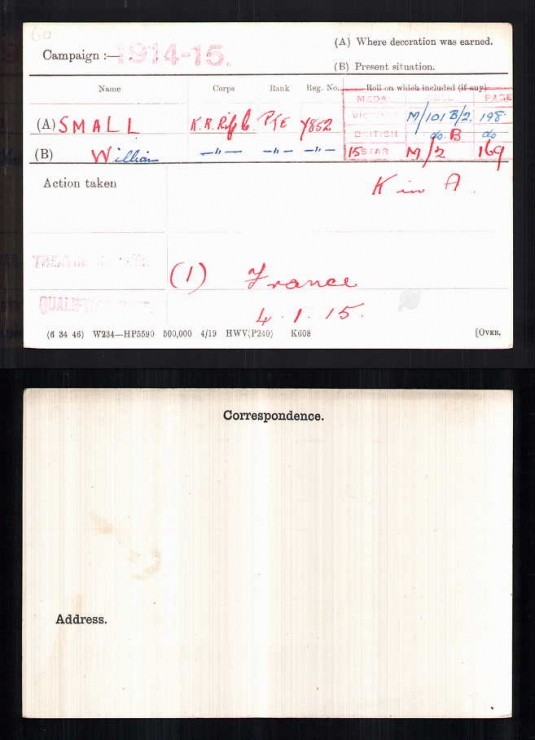 60
Campaign :— 1914-15.
(A) Where decoration was earned.
(B) Present situation.
Name Corps Rank Reg. No. Roll on which included (if any)
MEDAL ROLL PAGE
(A) SMALL K.R. Rif C Pte Y852 VICTORY M/101B/2 198.
(B) William —"— —"— —"— BRITISH do B do
15 STAR M/2 169
Action taken K in A.
THEATRE OF WAR
(1) France
QUALIFYING DATE
4.1.15.
(6 34 46) W234—HP5590 500,000 4/19 HWV(P240) K608 [OVER.
Correspondence.
Address.